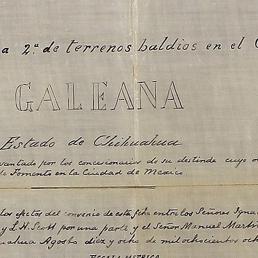 a 2ª de terrenos baldios en el C
GALEANA
Estado de Chihuahua
vantado por los concesionarios de su deslinde cuyo o
de Fomento en la Ciudad de Mexico
los efectos del convenio de esta fha entre los Señores Igna
y L.H. Scott por una parte y el Señor Manuel Marti
uahua Agosto diez y ocho de mil ochocientos och